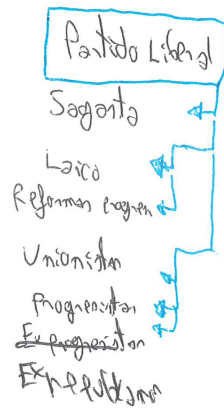 Partido Liberal
Sagasta
Laico
Reformas progres
Unionistas
Progresistas
Ex progresistas